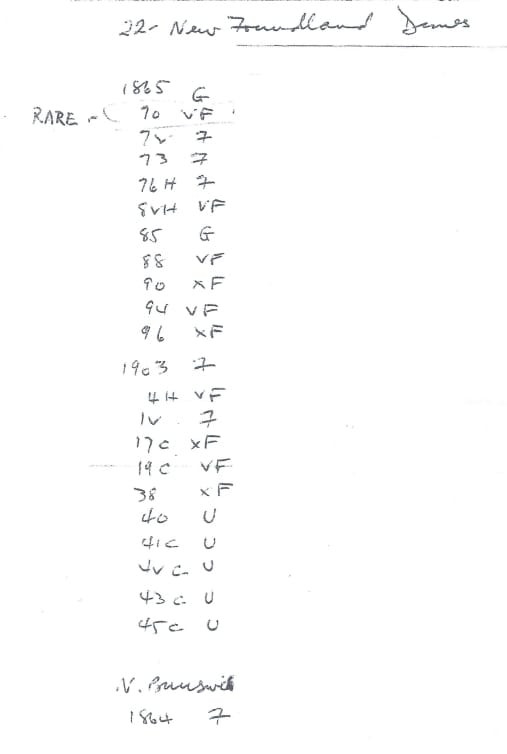 22- New Foundland Dimes
1865 G
RARE :- ( 70 VF
72 F
73 F
76 H F
82H VF
85 G
88 VF
90 XF
94 VF
96 XF
1903 F
4H VF
12 F
17C XF
19C VF
38 XF
40 U
41C U
42C U
43C U
45C U
N. Brunswick
1864 F